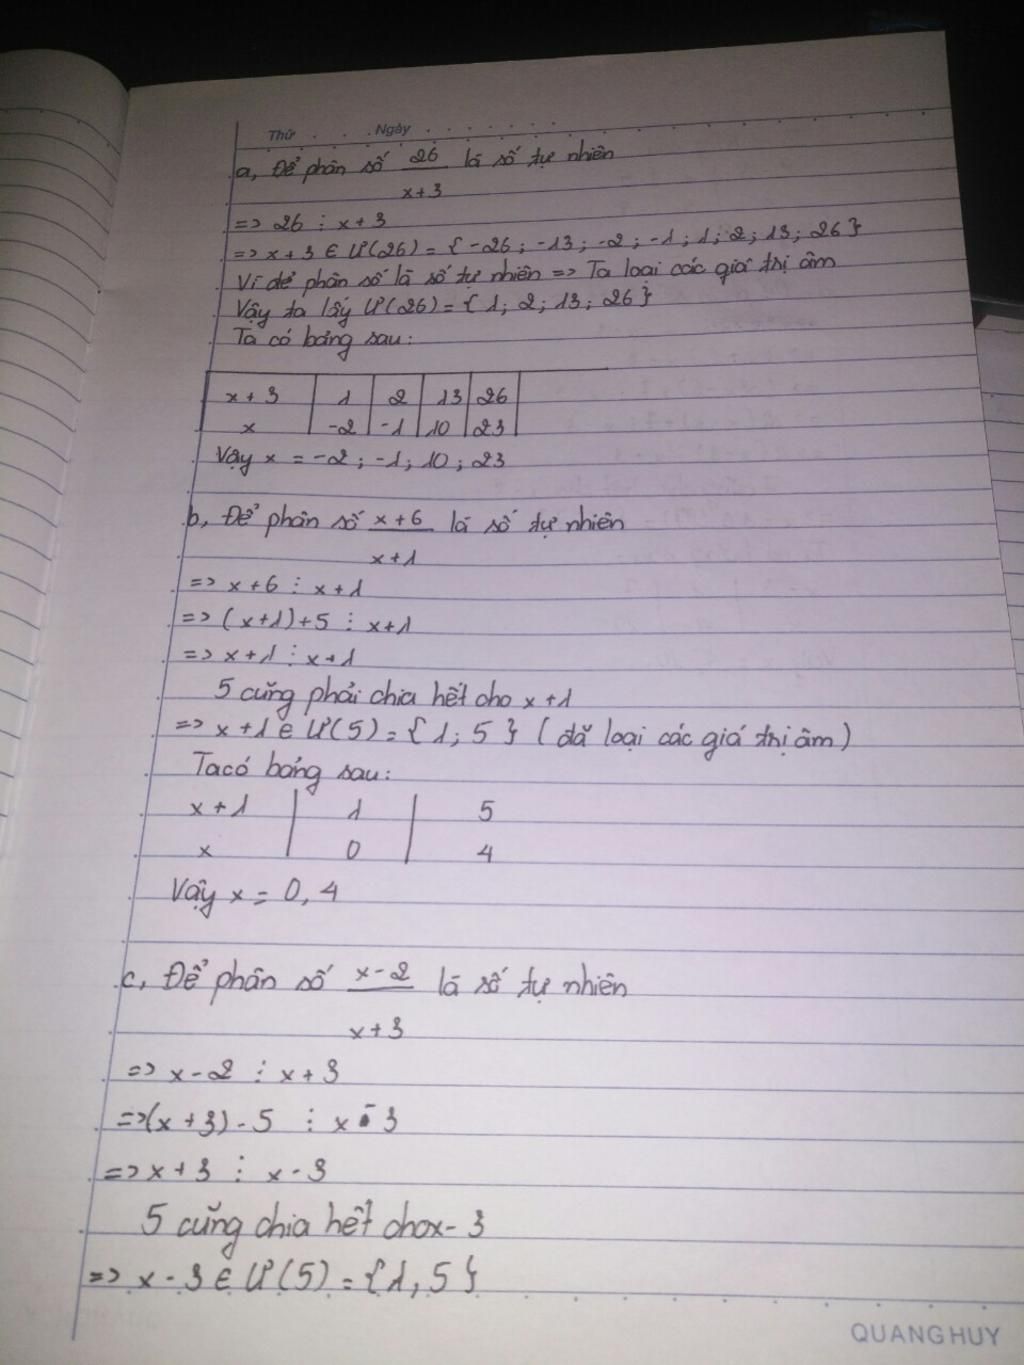 Thứ . . . Ngày . . . . . . .
a, Để phân số 26 là số tự nhiên
x+3
=> 26 ⋮ x+3
=> x+3 ∈ Ư(26) = { -26 ; -13 ; -2 ; -1 ; 1 ; 2 ; 13 ; 26 }
Vì để phân số là số tự nhiên => Ta loại các giá trị âm
Vậy ta lấy Ư(26) = { 1 ; 2 ; 13 ; 26 }
Ta có bảng sau :
x+3 1 2 13 26
x -2 -1 10 23
Vậy x = -2 ; -1 ; 10 ; 23
b, Để phân số x+6 là số tự nhiên
x+1
=> x+6 ⋮ x+1
=> (x+1)+5 ⋮ x+1
=> x+1 ⋮ x+1
5 cũng phải chia hết cho x+1
=> x+1 ∈ Ư(5) = { 1 ; 5 } ( đã loại các giá trị âm )
Ta có bảng sau :
x+1 1 5
x 0 4
Vậy x = 0, 4
c, Để phân số x-2 là số tự nhiên
x+3
=> x-2 ⋮ x+3
=> (x+3)-5 ⋮ x-3
=> x+3 ⋮ x-3
5 cũng chia hết cho x-3
=> x-3 ∈ Ư(5) = { 1, 5 }
QUANG HUY